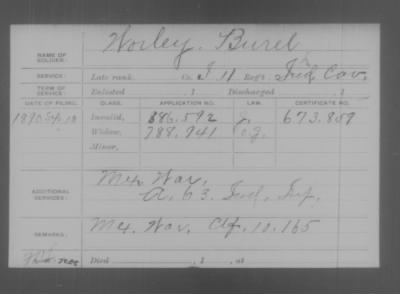 NAME OF SOLDIER: Worley, Burel
SERVICE: Late rank, Co. I 11 Reg't Ind. Cav.
TERM OF SERVICE: Enlisted , 1 Discharged , 1
DATE OF FILING. CLASS. APPLICATION NO. LAW. CERTIFICATE NO.
1890 Sep 18 Invalid, 886.592 J. 673.859
" Widow, 788.941 O.G.
Minor,
ADDITIONAL SERVICES: Mex War,
A. 63. Ind. Inf.
REMARKS: Mex. War, Ctf. 10.165
Died , 1 , at